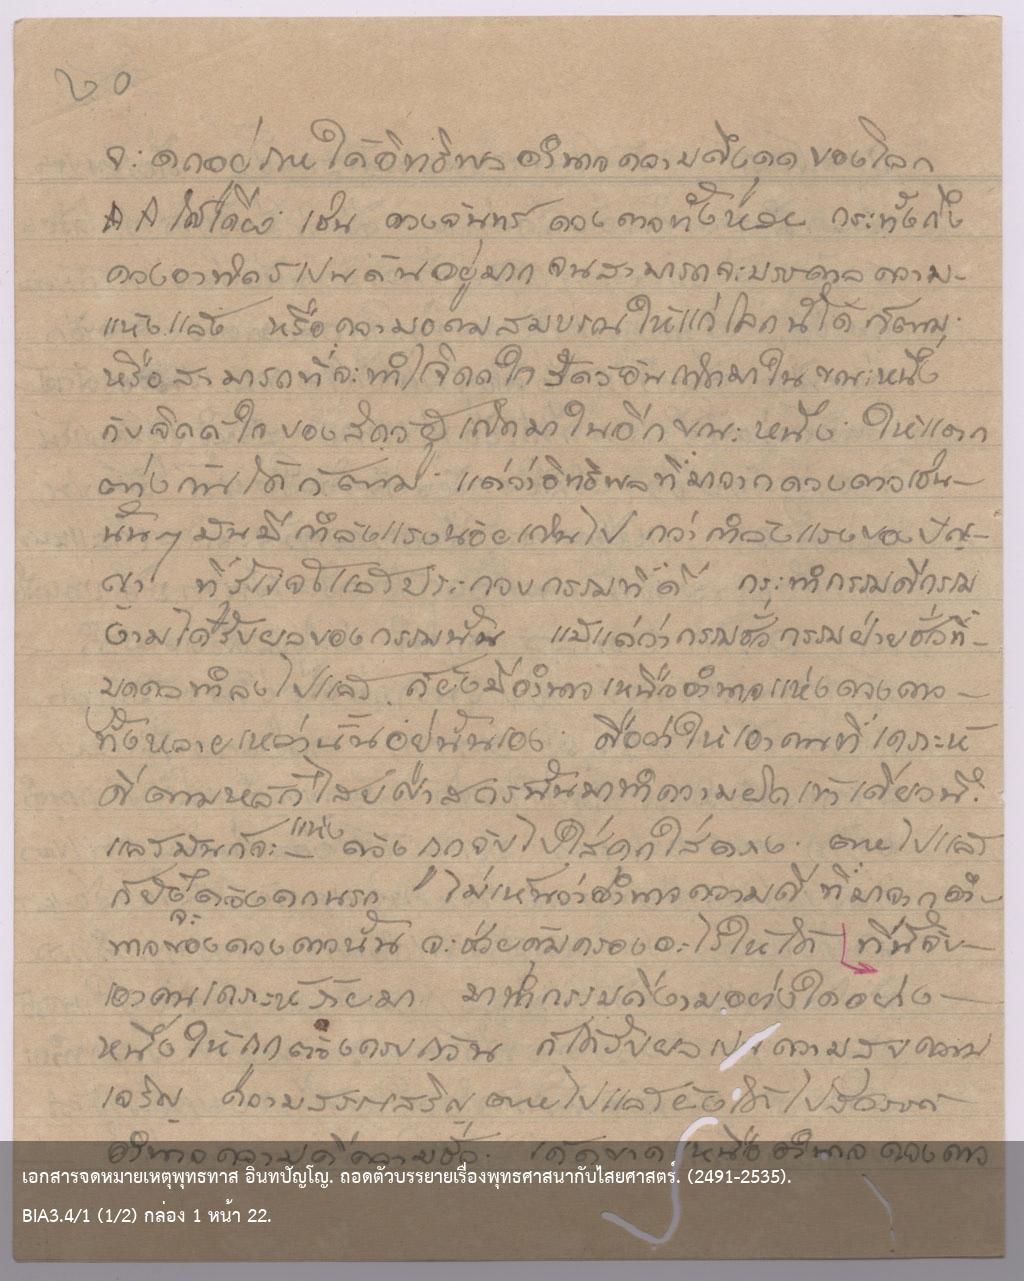 ๒๐
จะตกอยู่ภายใต้อิทธิพล อำนาจความดึงดูด ของโลก
ที่ใกล้เคียง เช่น ดวงจันทร์ ดวงดาวทั้งหลาย กระทั่งถึง
ดวงอาทิตย์เป็นต้นอยู่มาก จนสามารถจะบรรดาลความ-
แห้งแล้ง หรือความอุดมสมบูรณ์ให้แก่โลกนี้ได้ ก็ตาม
หรือสามารถที่จะทำให้จิตต์ใจสัตว์อันเกิดมาในขณะหนึ่ง
กับจิตต์ใจของสัตว์ผู้เกิดมาในอีกขณะหนึ่ง ให้แตก
ต่างกันได้ก็ตาม แต่ว่าอิทธิพลที่มาจากดวงดาวเช่น-
นั้นๆ มันมีกำลังแรงน้อยเกินไป กว่ากำลังแรงของปัญ-
ญา ที่รู้จักแล้วประกอบกรรมที่ดี กระทำกรรมดีกรรม
งามได้รับผลของกรรมนั้น แม้แต่ว่ากรรมชั่วกรรมฝ่ายชั่วที่-
บุคคลทำลงไปแล้ว ก็ยังมีอำนาจเหนืออำนาจแห่งดวงดาว-
ทั้งหลายเหล่านั้นอยู่นั่นเอง คือว่าให้เอาคนที่เคราะห์
ดีตามหลักไสยศาสตร์นั้นมาทำความผิดเข้าเดี๋ยวนี้
แล้วมันก็จะ แห่ง ต้องถูกจับไปใส่คุกใส่ตราง ตายไปแล้ว
ก็ยังต้องตกนรก ไม่เห็นว่าอำนาจความดี ที่มาจากอำ-
นาจของดวงดาวนั้น จะช่วยคุ้มครองอะไรให้ได้ ทีนี้จับ-
จะ
เอาคนเคราะห์ร้ายมา มาทำกรรมดีงามอย่างใดอย่าง-
หนึ่งให้ถูกต้องครบถ้วน ก็ได้รับผลเป็นความสุขความ
เจริญ ความสรรเสริญ ตายไปแล้วยังได้ไปสวรรค์
อำนาจความดีความชั่ว เด็ดขาดเหนืออำนาจดวงดาว
เอกสารจดหมายเหตุพุทธทาส อินทปัญโญ. ถอดตัวบรรยายเรื่องพุทธศาสนากับไสยศาสตร์. (2491-2535).
BIA3.4/1 (1/2) กล่อง 1 หน้า 22.